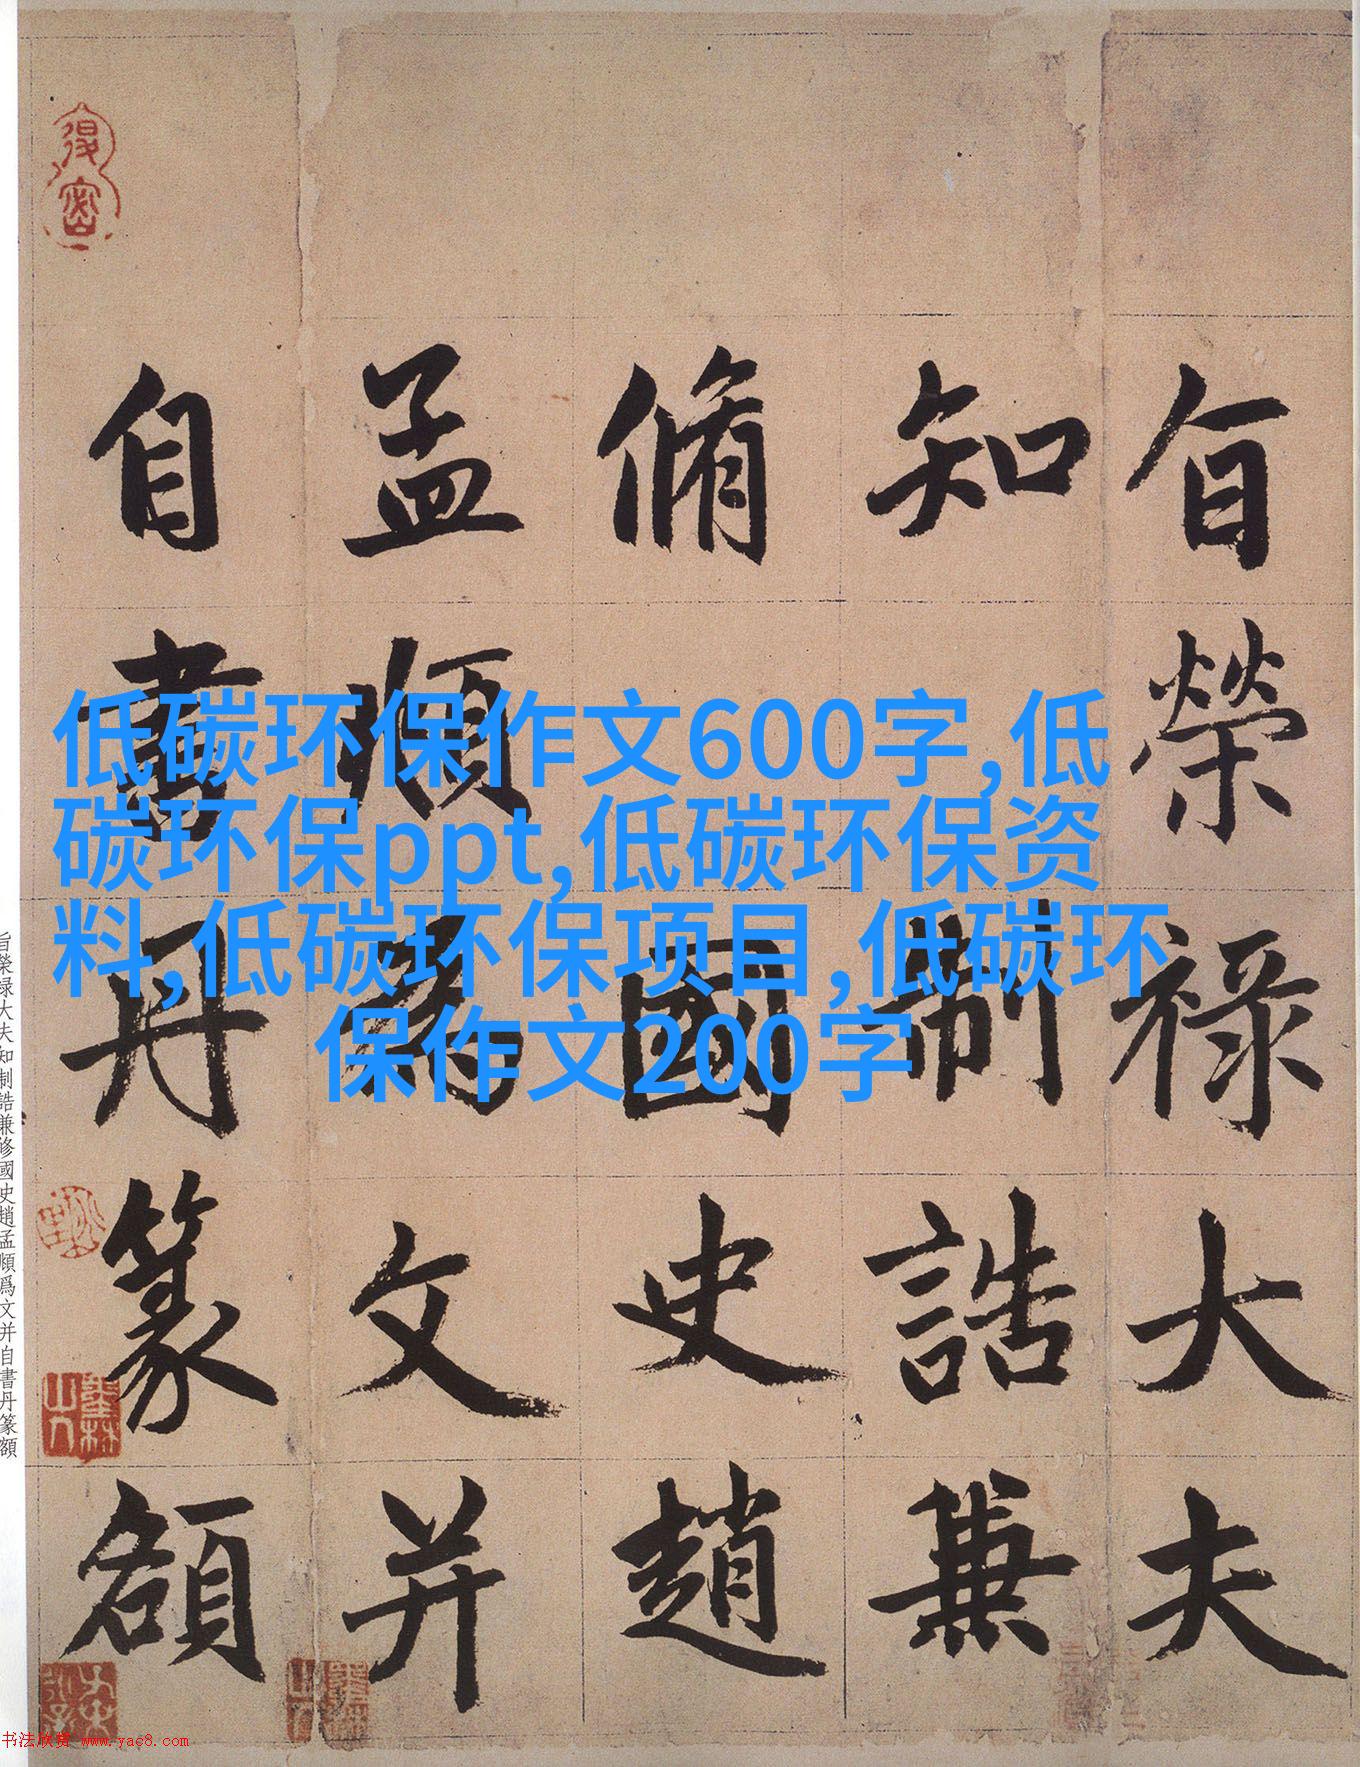 旨榮祿大夫
知制誥兼
脩國史趙
孟頫為文并
自書丹篆額
低碳环保作文600字,低
碳环保ppt,低碳环保资
料,低碳环保项目,低碳环
保作文200字
旨榮禄大夫知制誥兼修國史趙孟頫爲文并自書丹篆額
书法欣赏 www.yac8.com